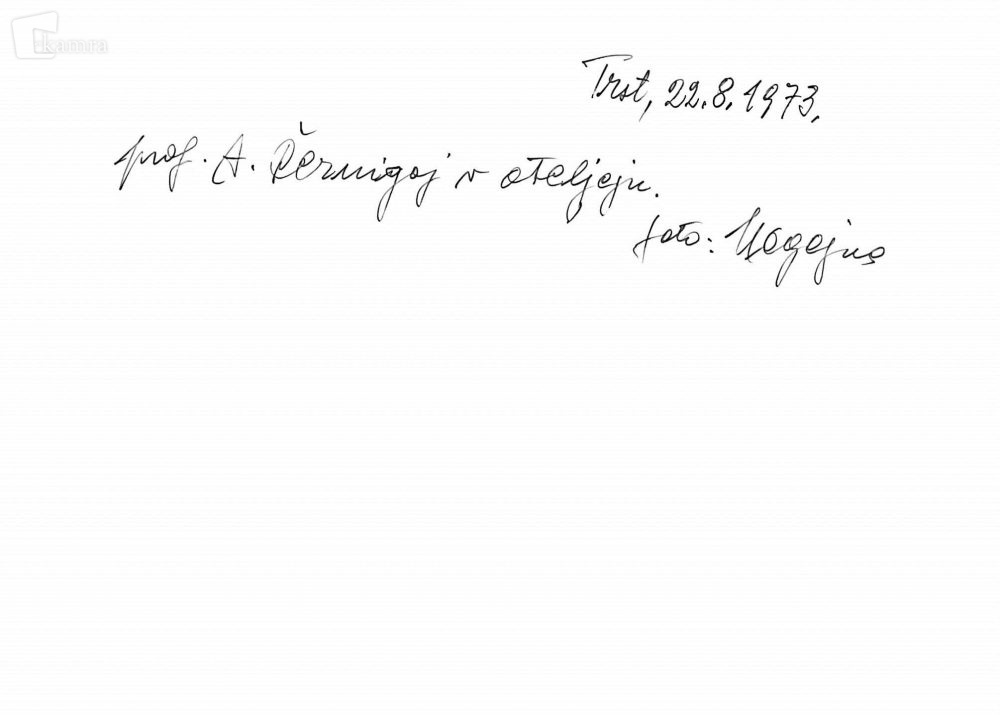 kamra
Trst, 22.8.1973.
prof. A. Černigoj v ateljeju.
foto: Magajna